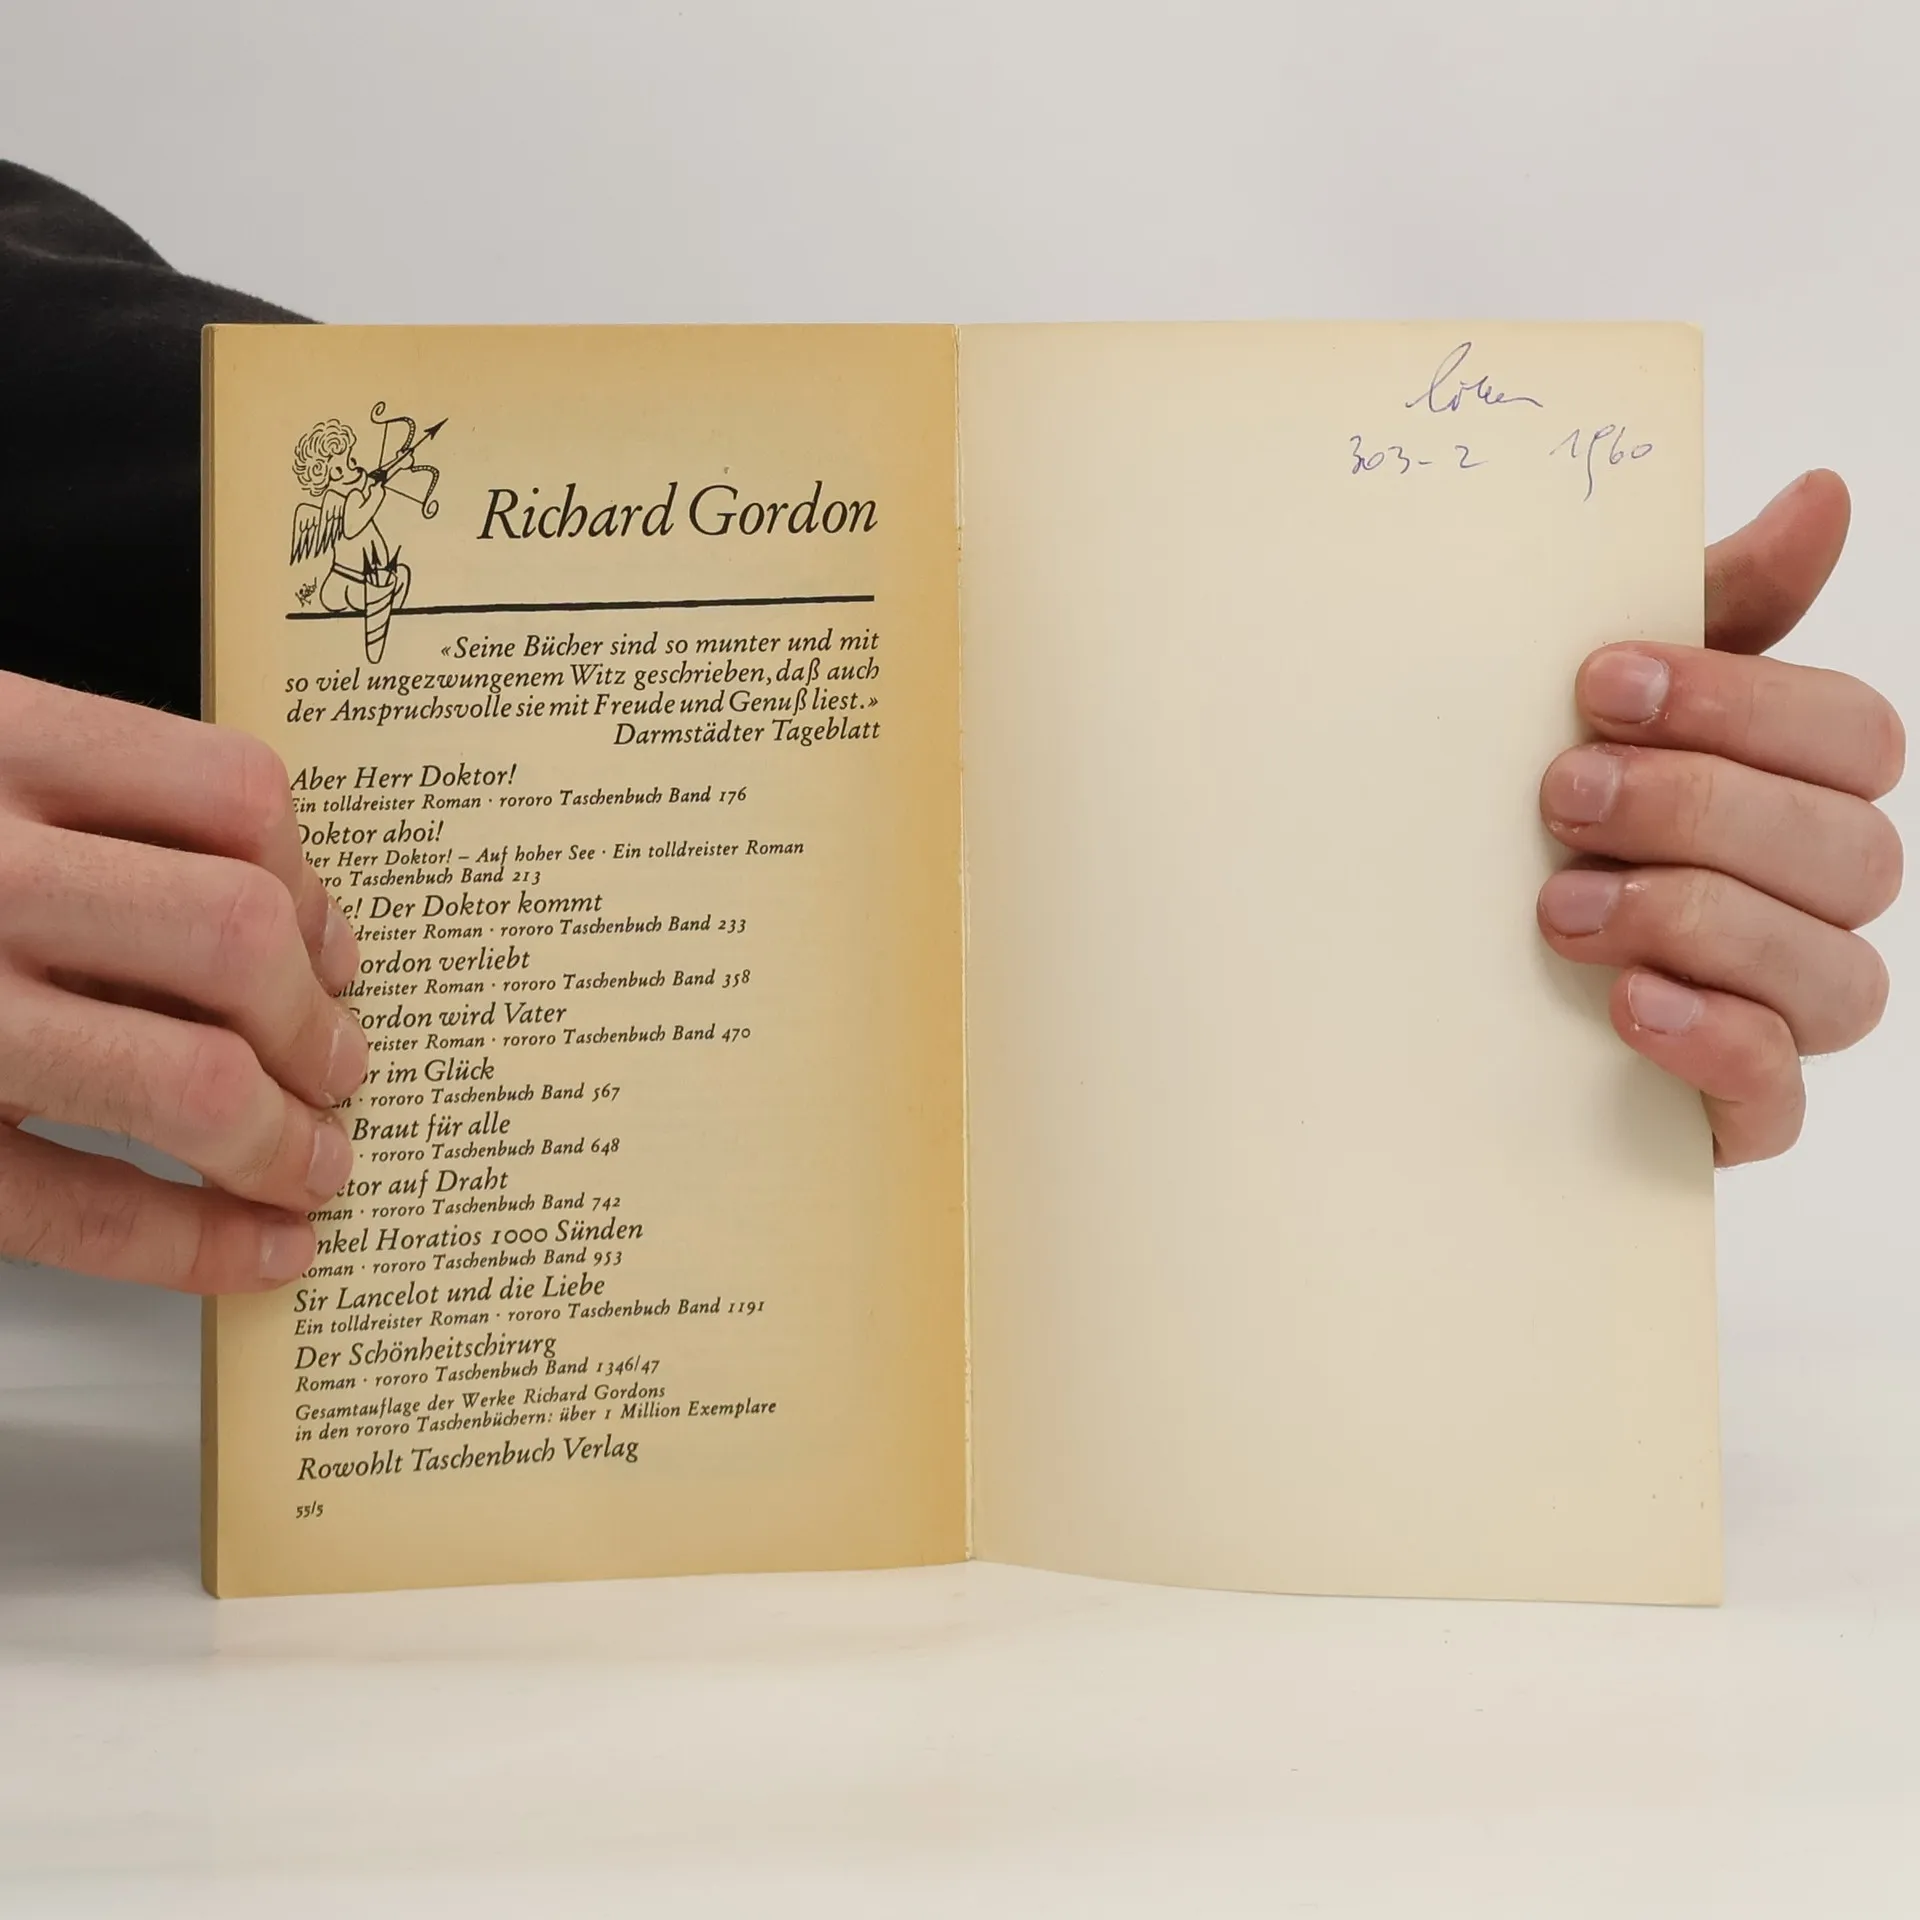 Richard Gordon
«Seine Bücher sind so munter und mit
so viel ungezwungenem Witz geschrieben, daß auch
der Anspruchsvolle sie mit Freude und Genuß liest.»
Darmstädter Tageblatt
Aber Herr Doktor!
Ein tolldreister Roman · rororo Taschenbuch Band 176
Doktor ahoi!
Herr Doktor! – Auf hoher See · Ein tolldreister Roman
Taschenbuch Band 213
Der Doktor kommt
Roman · rororo Taschenbuch Band 233
verliebt
Roman · rororo Taschenbuch Band 358
Gordon wird Vater
Roman · rororo Taschenbuch Band 470
im Glück
· rororo Taschenbuch Band 567
Braut für alle
· rororo Taschenbuch Band 648
auf Draht
Roman · rororo Taschenbuch Band 742
Horatios 1000 Sünden
Roman · rororo Taschenbuch Band 953
Sir Lancelot und die Liebe
Ein tolldreister Roman · rororo Taschenbuch Band 1191
Der Schönheitschirurg
Roman · rororo Taschenbuch Band 1346/47
Gesamtauflage der Werke Richard Gordons
in den rororo Taschenbüchern: über 1 Million Exemplare
Rowohlt Taschenbuch Verlag
55/5
303-2 1960